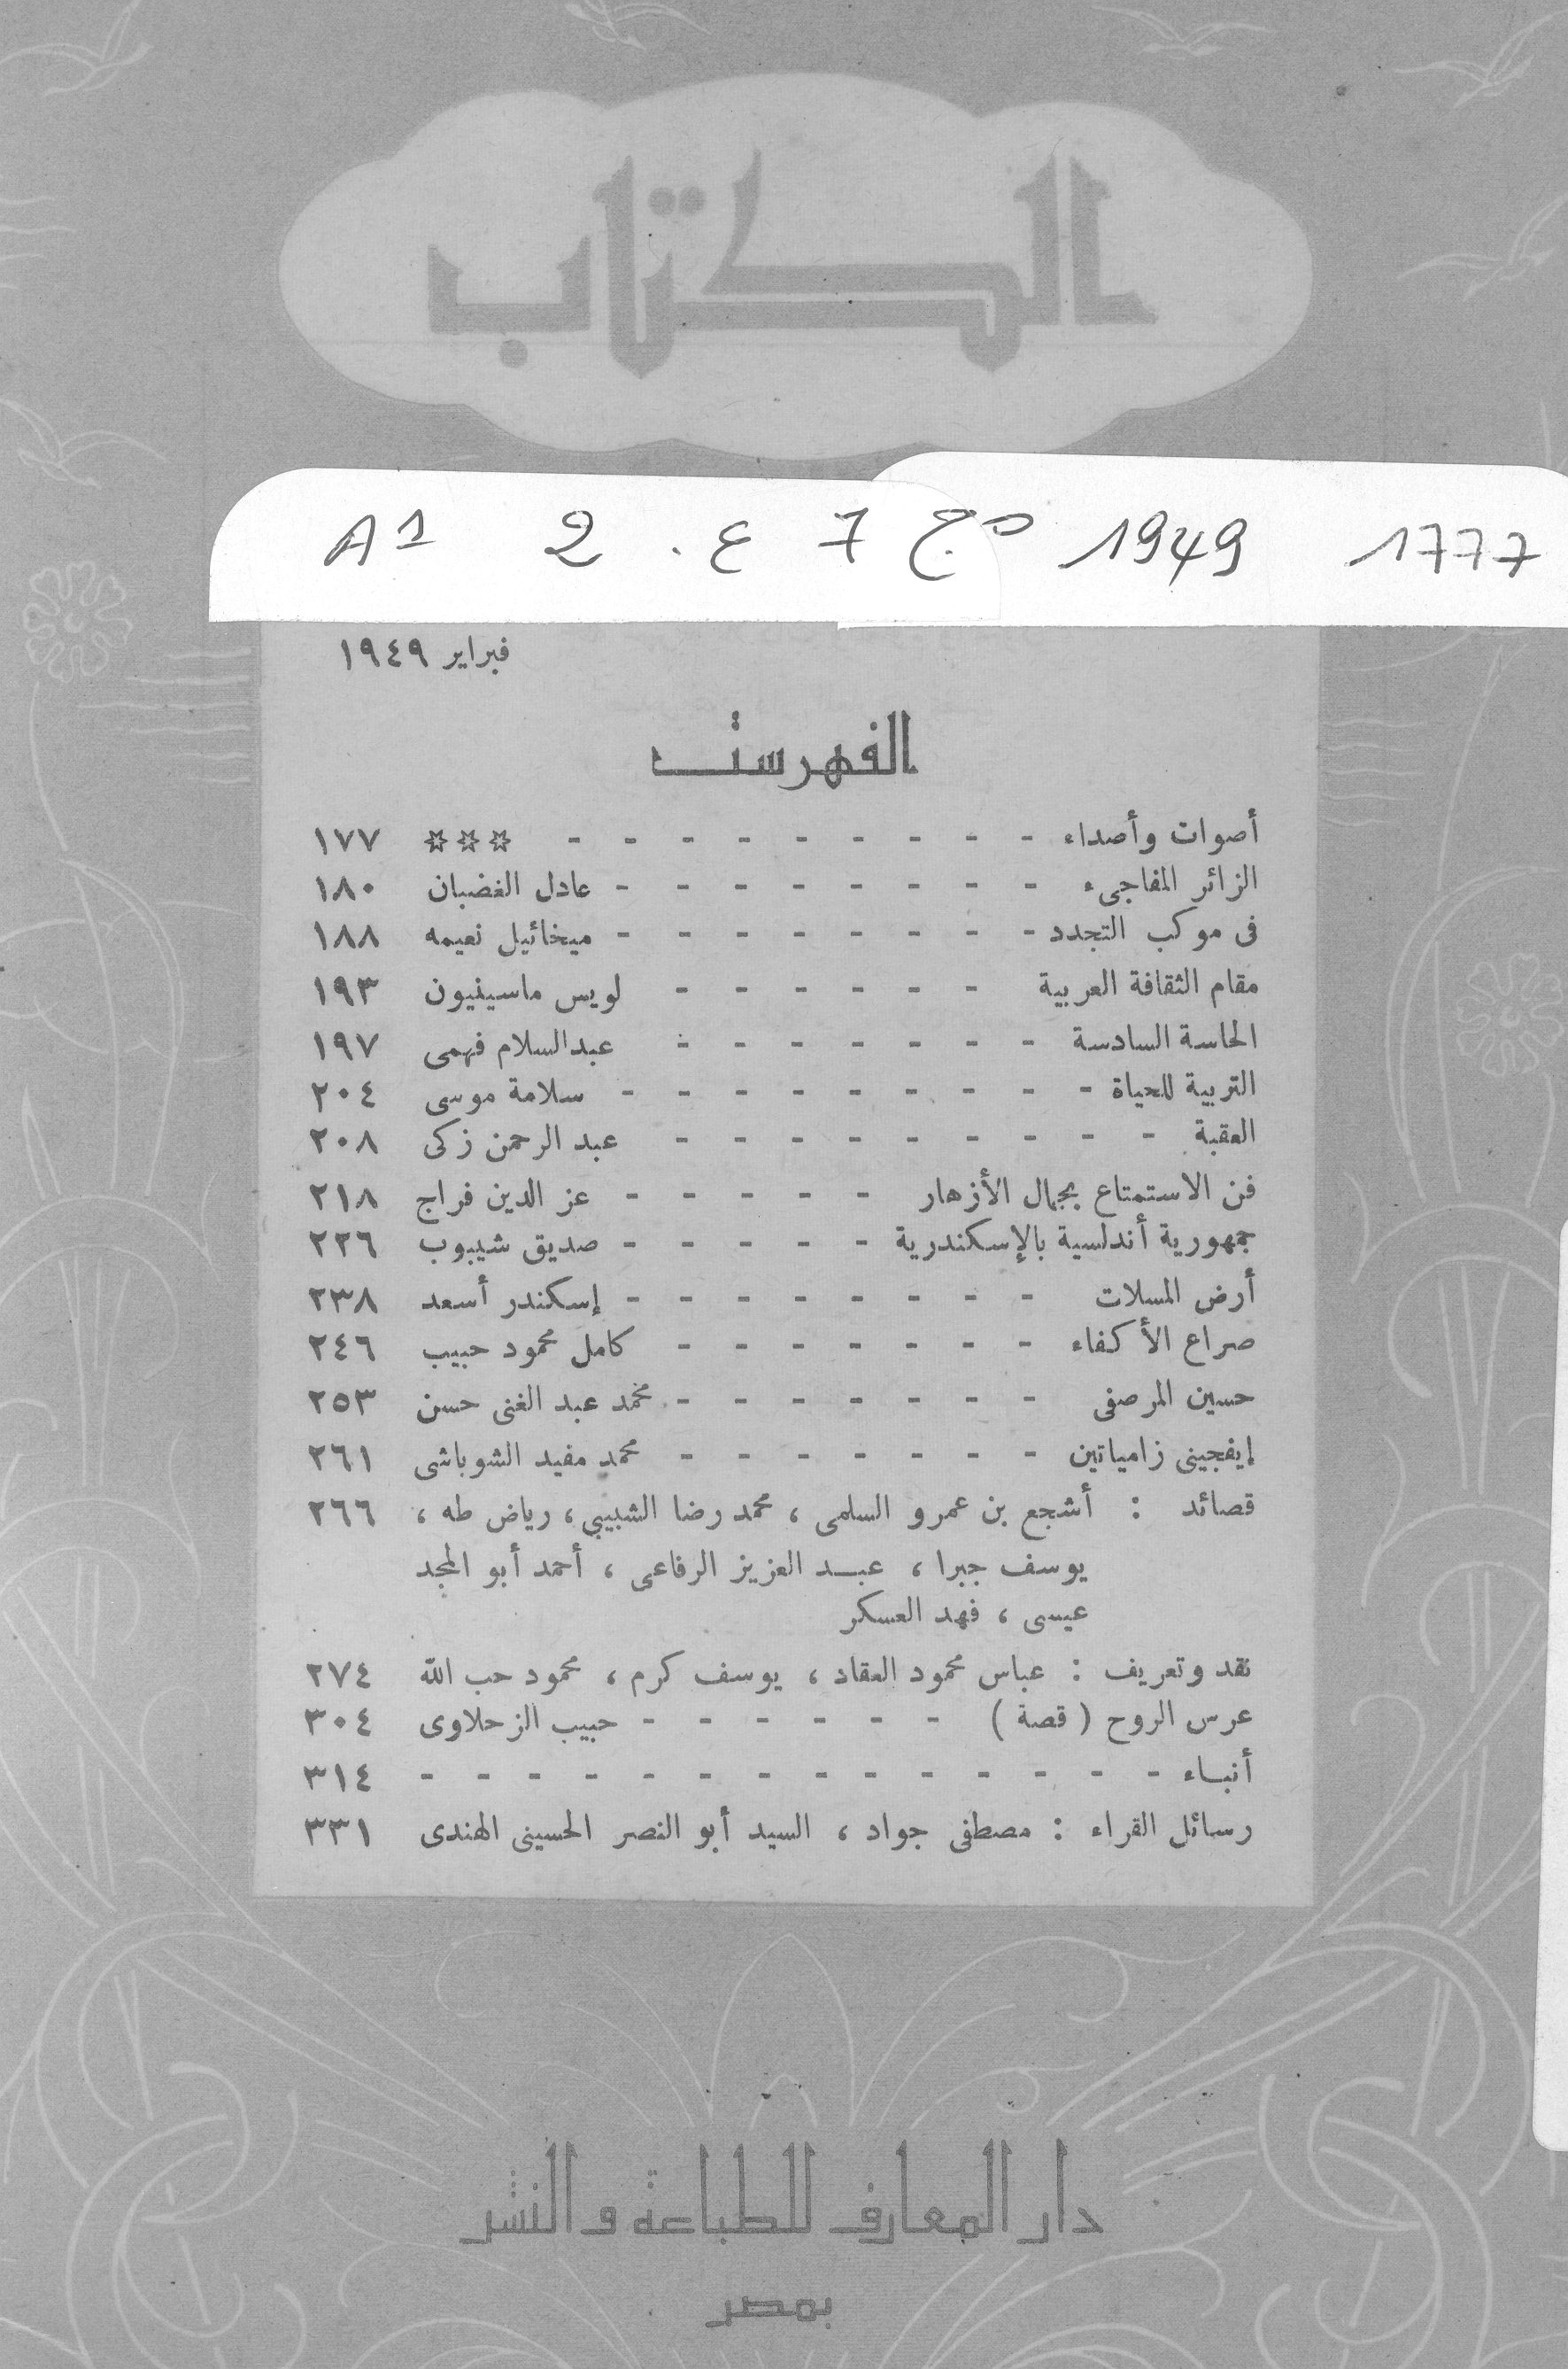 الكتاب
1777 1949 مج 7 ع. 2 A1
فبراير ١٩٤٩
الفهرست
أصوات وأصداء - - - - - - - - - ☆☆☆ ١٧٧
الزائر المفاجىء - - - - - - - - عادل الغضبان ١٨٠
فى موكب التجدد - - - - - - - - ميخائيل نعيمه ١٨٨
مقام الثقافة العربية - - - - - - لويس ماسينيون ١٩٣
الحاسة السادسة - - - - - - - عبدالسلام فهمى ١٩٧
التربية للحياة - - - - - - - - - سلامة موسى ٢٠٤
العقبة - - - - - - - - - عبد الرحمن زكى ٢٠٨
فن الاستمتاع بجمال الأزهار - - - - - عز الدين فراج ٢١٨
جمهورية أندلسية بالإسكندرية - - - - - صديق شيبوب ٢٢٦
أرض المسلات - - - - - - - - إسكندر أسعد ٢٣٨
صراع الأكفاء - - - - - - - كامل محمود حبيب ٢٤٦
حسين المرصفى - - - - - - - محمد عبد الغنى حسن ٢٥٣
إيفجينى زامياتين - - - - - - - محمد مفيد الشوباشى ٢٦١
قصائد : أشجع بن عمرو السلمى ، محمد رضا الشبيبي ، رياض طه ، ٢٦٦
يوسف جبرا ، عبـد العزيز الرفاعى ، أحمد أبو المجد
عيسى ، فهد العسكر
نقد وتعريف : عباس محمود العقاد ، يوسف كرم ، محمود حب الله ٢٧٤
عرس الروح ( قصة ) - - - - - - حبيب الزحلاوى ٣٠٤
أنبـاء - - - - - - - - - - - - - - ٣١٤
رسائل القراء : مصطفى جواد ، السيد أبو النصر الحسينى الهندى ٣٣١
دار المعارف للطباعة والنشر
بمصر